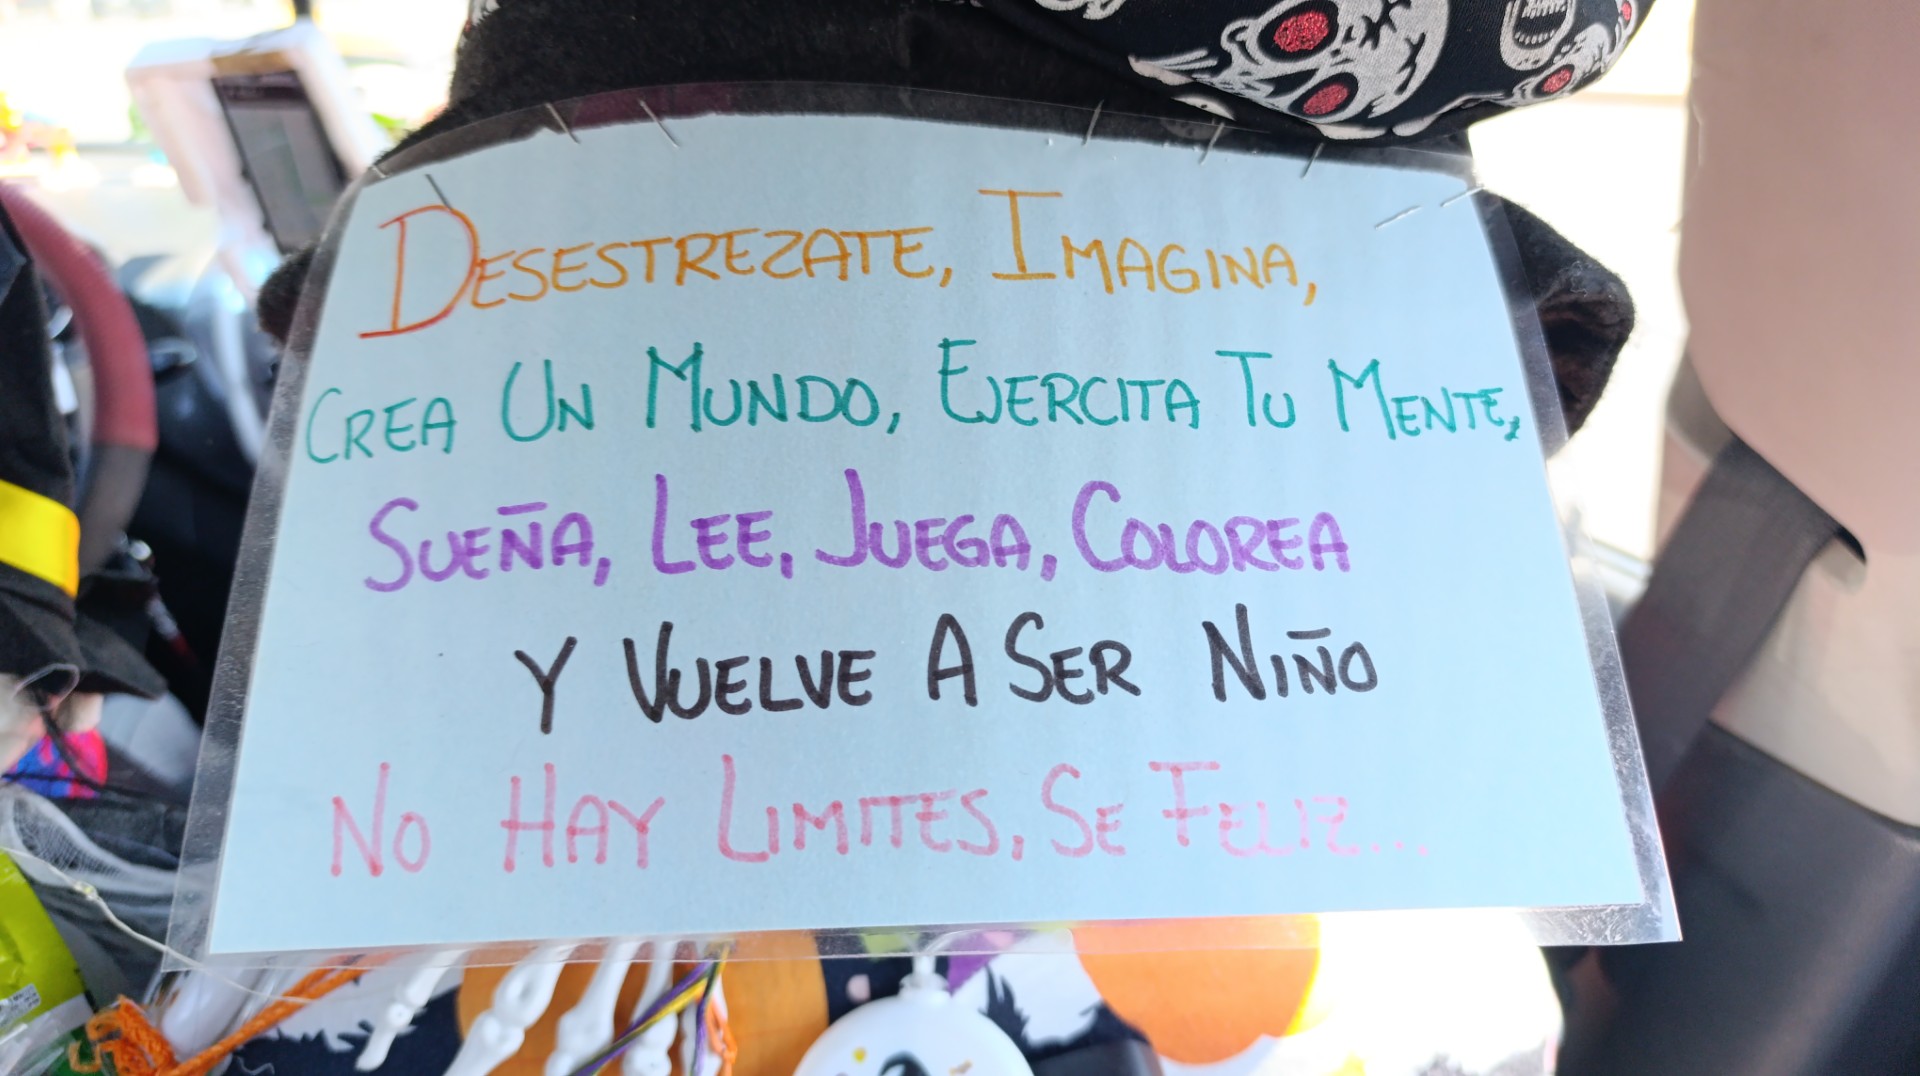 DESESTREZATE, IMAGINA,
CREA UN MUNDO, EJERCITA TU MENTE,
SUEÑA, LEE, JUEGA, COLOREA
Y VUELVE A SER NIÑO
NO HAY LIMITES, SE FELIZ...